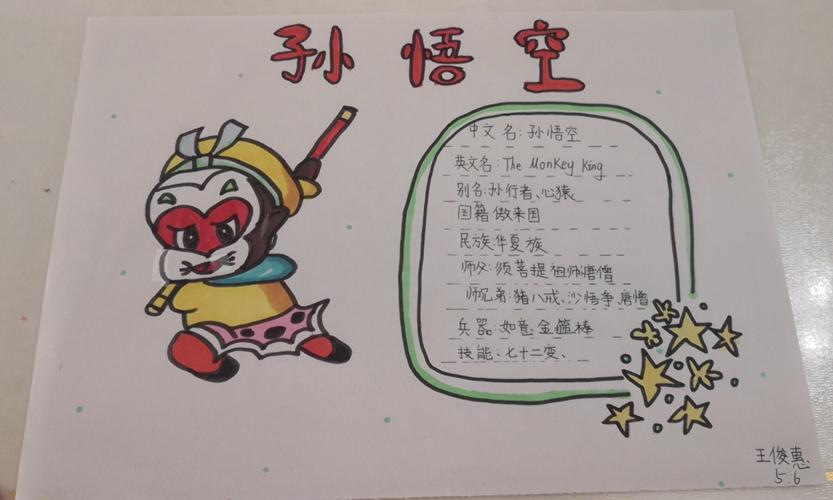 孙悟空
中文名:孙悟空
英文名:The Monkey King
别名:孙行者、心猿、
国籍 傲来国
民族:华夏族
师父:须菩提祖师
师兄弟:猪八戒、沙悟争、
兵器:如意金箍棒
技能:七十二变、
王俊惠
5.6